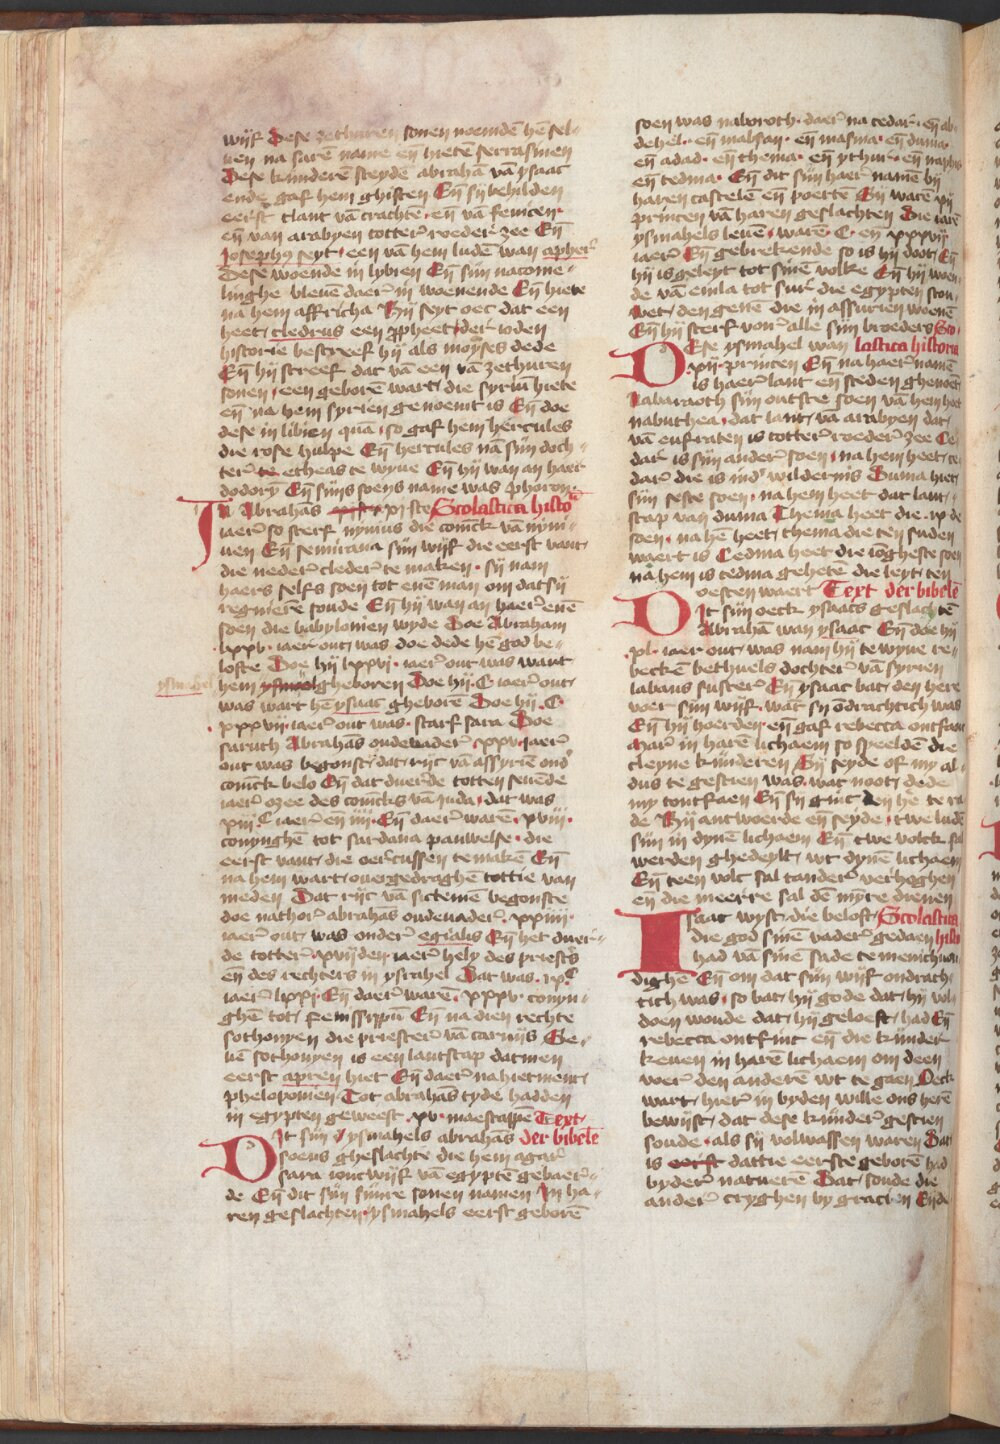 wijf Dese zethuren sonen noemdē hē sel-
ken na sarē name eñ hietē serrasinen
Dese kinderē steydē abrahā vā ysaac
ende gaf hem ghiften Eñ sij behilden
eerst tlant vā crachte · eñ vā fenicen ·
eñ van arabyen totter roeder zee Eñ
Josephꝰ seyt · een vā hem ludē wan apher
Dese woende in lybien Eñ sijn nacome-
linghe bleuē daer in woenende Eñ hiete
na hem affricha Hij seyt oec dat een
heet cledrus een ꝓpheet der ioden
historie bestreef hij als moyses dede
Eñ hij streef dat vā een vā zethuren
sonen · een geborē wart · die syrim hiete
eñ na hem syrien genoemt is Eñ doe
dese in libien quā · so gaf hem hercules
die rose hulpe Eñ hercules nā sijn doch-
ter te etheas te wyue Eñ hij wan an haer
dodorij Eñ sijns soens name was phoron ·
In Abrahās xviste Scolastica histo
iaer so sterf nynius die coninck vā nyni-
uen Eñ semirana sijn wijf die eerst vant
die neder cleder te maken · sij nam
haers selfs soen tot enē man om dat sij
regnierē soude Eñ hij wan an haer enē
soen die babylonien wyde Doe Abraham
· lxxv · iaer out was doe dede hē god be-
lofte Doe hij lxxvi · iaer out was wart
ysmahel
hem gheboren Doe hij · C iaer out
was wart hē ysaac gheborē Doe hij · C ·
· xxxvii · iaer out was · starf sara Doe
saruch Abrahās oudeuader · xxv · iaer
out was begonst · dat rijc vā assyriē ond
coninck belo Eñ dat duerde totten seuēde
iaer ozee des conincks vā iuda · dat was
xiii C iaer eñ iiii · Eñ daer warē · xviii ·
conynghē tot sardana pauwelse · die
eerst vant die oercussen te makē Eñ
na hem wart ouergedraghē tottie van
meden Dat rijc vā sictemē begonste
doe nathor abrahās oudeuader · xxiiii ·
iaer out was onder egialis Eñ het duer-
de totter xviiden iaer hely des priesters
eñ des rechters in ysrahel Dat was · ix C
iaer lxxi · Eñ daer warē · xxxv · conyn-
ghē tot Eñ na dien rechte
sothonyen die priester vā carnijs Ge-
uē sothonyen is een lantscap dat men
eerst apren hiet Eñ daer na hietment
pheloponien Tot abrahās tyde hadden
in egypten geweest · xv · Text
Dit sijn ysmahels abrahās der bibele
soens gheslachte die hem agar
sara ioncwijf vā egyptē gebaer-
de Eñ dit sijn sijnre sonen namen In ha-
ren geslachten · ysmahels eerst geborē
soen was naboroth · daer na cedar · eñ ab-
dehel · eñ mabsan · eñ masma · eñ duma ·
eñ adad · eñ thema · eñ ythur · eñ naphis
eñ cedma · Eñ dit sijn haer namē bij
haren castelē eñ poertē Sij warē xii
princen vā haren geslachten Die iarē
ysmahels leuē · warē · C · en xxxvii
iaer Eñ gebrekende so is hij doot Eñ
hij is geleyt tot sinē volke Eñ hij woen-
de vā euila tot sur die egypten scou-
wet · den genē die in assurien woenē
Eñ hij sterf vor alle sijn broeders Sco-
Dese ysmahel wan lastica historia
xii · princen Eñ na haer namē
is haer lant eñ steden ghenoēt
Nabaraoth sijn outste soen vā hem heet
nabuthea · dat lant · vā arabyen dat
vā eufraten is totter roeder zee Ce-
dar is sijn ander soen · na hem heet ce-
dar die is ind wildernis Duma hiet
sijn seste soen · na hem heet dat lant-
scap van duma Thema heet die · ix de
soen · na hē heet · thema die ten suden
waert is Cedma heet die ioghste soen
na hem is cedma gehetē die leyt ten
oesten waert Text der bibele
Dit sijn oeck ysaacs geslachtē
Abrahā wan ysaac Eñ doe hij
· xl · iaer out · was nam hij te wyue re-
beckē bethuels dochter vā syrien
labans suster Eñ ysaac bat den here
voer sijn wijf · wāt sij ondrachtich was
Eñ hij hoerden · eñ gaf rebecca ontfaen
Mar in harē lichaem so speeldē die
cleyne kinderen Sij seyde of my al-
dus te gescien was · wat noot dede
my tontfaen Eñ sij ginc den he te ra
de Hij antwoerde eñ seyde · twe ludē
sijn in dynē lichaem Eñ twe volck sal
werden ghedeylt · wt dynē lichaem
Eñ teen volc sal tander verhoghen
en die meerre sal dē mynre dienen
Isaac wyst · die beloft Scolastica
die god sinē vader gedaen histo
had vā sinē sade te menichuou
dighē Eñ om dat sijn wijf ondrach-
tich was · so bat hij gode dat hij vol-
doen woude dat hij geloeft · had Eñ
rebecca ontfinc eñ die kinder
keuen in harē lichaem om deen
voer den anderē wt te gaen Oeck
wart · hier in byden wille ons herē
bewijst · dat dese kinder gescien
soude · als sij volwassen waren Dat
is dattie eerste geborē had
byder natuerē Dat · soude die
ander cryghen by gracien Ende